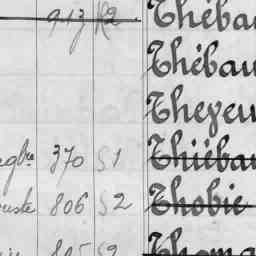 913 R2 Théba
Thébau
Theveu
370 S1 Thiéba
uste 806 S2 Thobie
805 S2 Thoma